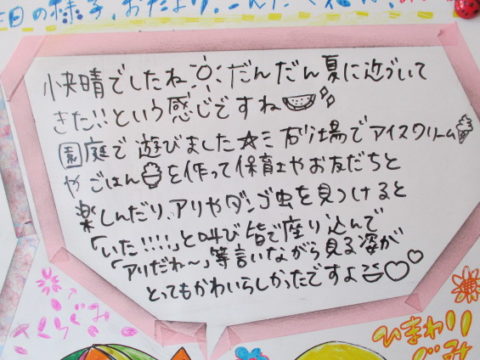 日の様子、おたより、こんだて
快晴でしたね だんだん夏に近づいて
きた!!という感じですね
園庭で遊びました☆ミ 砂場でアイスクリーム
やごはんを作って保育士やお友だちと
楽しんだり、アリやダンゴ虫を見つけると
「いた!!!!」と叫び皆で座り込んで
「アリだね〜」等言いながら見る姿が
とってもかわいらしかったですよ
さくらぐみ
ひまわり
ぐみ